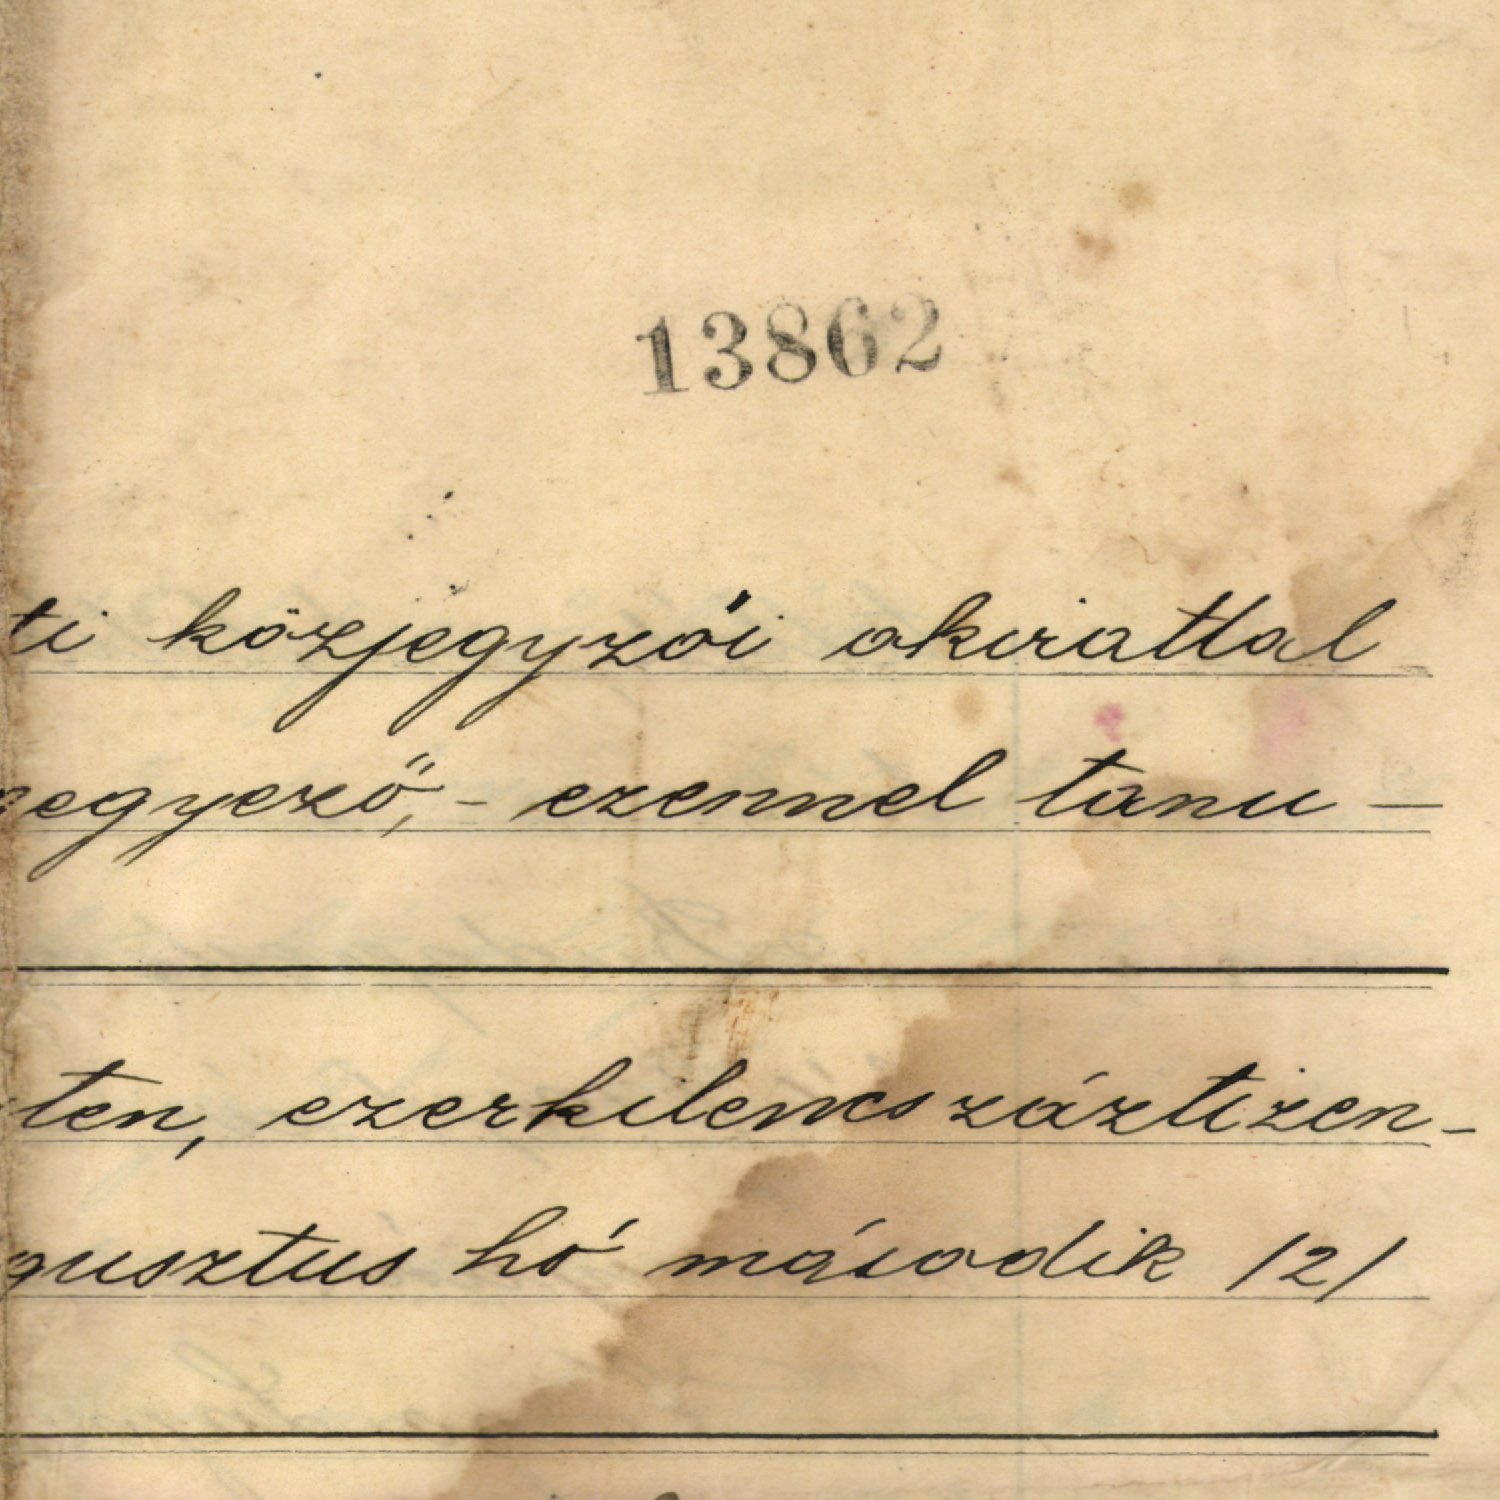 13862
ti közjegyzői okirattal
egyező, - ezennel tanu -
ten, ezerkilencszáztizen-
gusztus hó második /2/